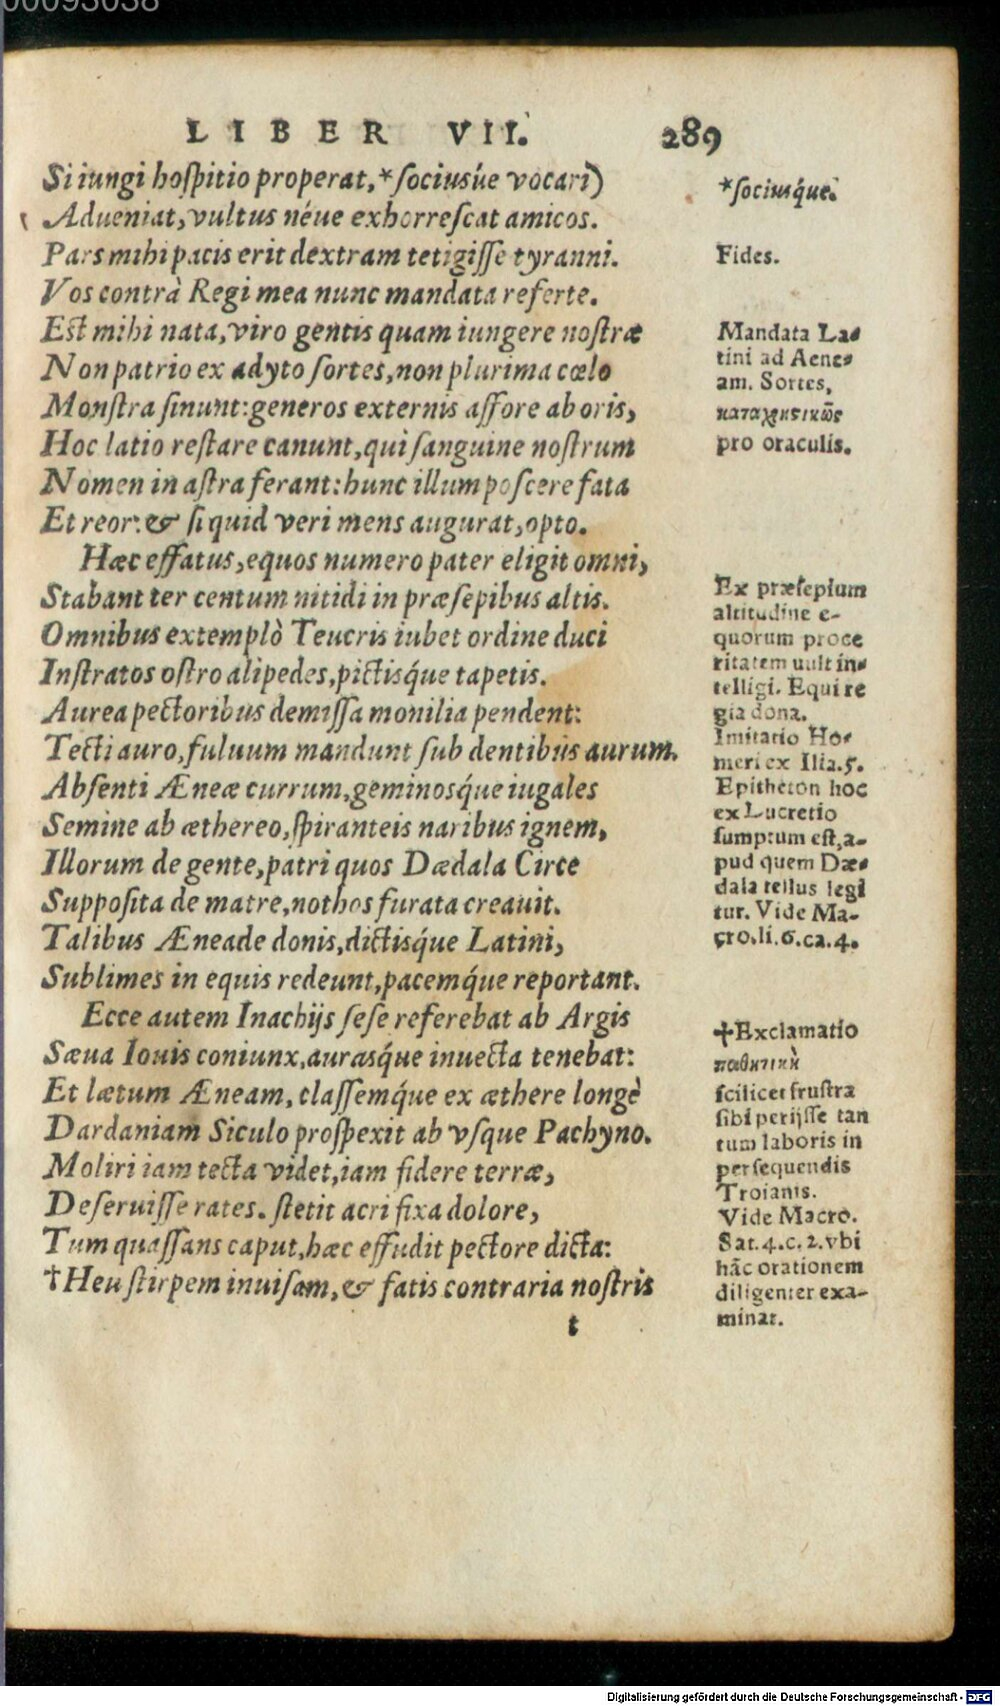 00093038
LIBER VII. 289
Si iungi hoſpitio properat, *ſociusúe vocari)
Adueniat, vultus néue exhorreſcat amicos.
Pars mihi pacis erit dextram tetigiſſe tyranni.
Vos contrà Regi mea nunc mandata referte.
Est mihi nata, viro gentis quam iungere noſtræ
Non patrio ex adyto ſortes, non plurima cælo
Monſtra ſinunt: generos externis affore ab oris,
Hoc latio reſtare canunt, qui ſanguine noſtrum
Nomen in aſtra ferant: hunc illum poſcere fata
Et reor: & ſi quid veri mens augurat, opto.
Hæc effatus, equos numero pater eligit omni,
Stabant ter centum nitidi in præſepibus altis.
Omnibus extemplò Teucris iubet ordine duci
Inſtratos oſtro alipedes, pictisq́ue tapetis.
Aurea pectoribus demiſſa monilia pendent:
Tecti auro, fuluum mandunt ſub dentibus aurum.
Abſenti Æneæ currum, geminosq́ue iugales
Semine ab æthereo, ſpiranteis naribus ignem,
Illorum de gente, patri quos Dædala Circe
Suppoſita de matre, nothos furata creauit.
Talibus Æneade donis, dictisq́ue Latini,
Sublimes in equis redeunt, pacemq́ue reportant.
Ecce autem Inachijs ſeſe referebat ab Argis
Sæua Iouis coniunx, aurasq́ue inuecta tenebat:
Et lætum Æneam, claſſemq́ue ex æthere longè
Dardaniam Siculo proſpexit ab vſque Pachyno.
Moliri iam tecta videt, iam fidere terræ,
Deſeruiſſe rates. ſtetit acri fixa dolore,
Tum quaſſans caput, hæc effudit pectore dicta:
†Heu ſtirpem inuiſam, & fatis contraria noſtris
t
*ſociusq́ue.
Fides.
Mandata La-
tini ad Aene-
am. Sortes,
καταχρηστικῶς
pro oraculis.
Ex præſepium
altitudine e-
quorum proce
ritatem uult in-
telligi. Equi re
gia dona.
Imitatio Ho-
meri ex Ilia. 5.
Epitheton hoc
ex Lucretio
ſumptum eſt, a-
pud quem Dæ-
dala tellus legi
tur. Vide Ma-
cro. li. 6. ca. 4.
†Exclamatio
παθητικὴ
ſcilicet fruſtra
ſibi perijſſe tan
tum laboris in
perſequendis
Troianis.
Vide Macro.
Sat. 4. c. 2. vbi
hāc orationem
diligenter exa-
minat.
Digitalisierung gefördert durch die Deutsche Forschungsgemeinschaft - DFG